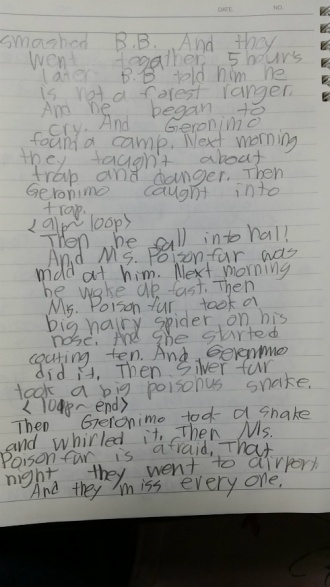 DATE NO.
smashed B.B. And they
went together. 5 hours
later B.B told him he
is not a forest ranger.
And he began to
cry. And Geronimo
found a camp. Next morning
they taught about
trap and danger. Then
Geronimo caught into
trap.
Then he fall into hall!
And Ms. Poison fur was
mad at him. Next morning
he woke up fast. Then
Ms. Poison fur took a
big hairy spider on his
nose. And she started
couting ten. And Geronimo
did it. Then Silver fur
took a big poisonus snake.
end>
Then Geronimo took a snake
and whirled it. Then Ms.
Poison fur is afraid. That
night they went to airport
And they miss every one.